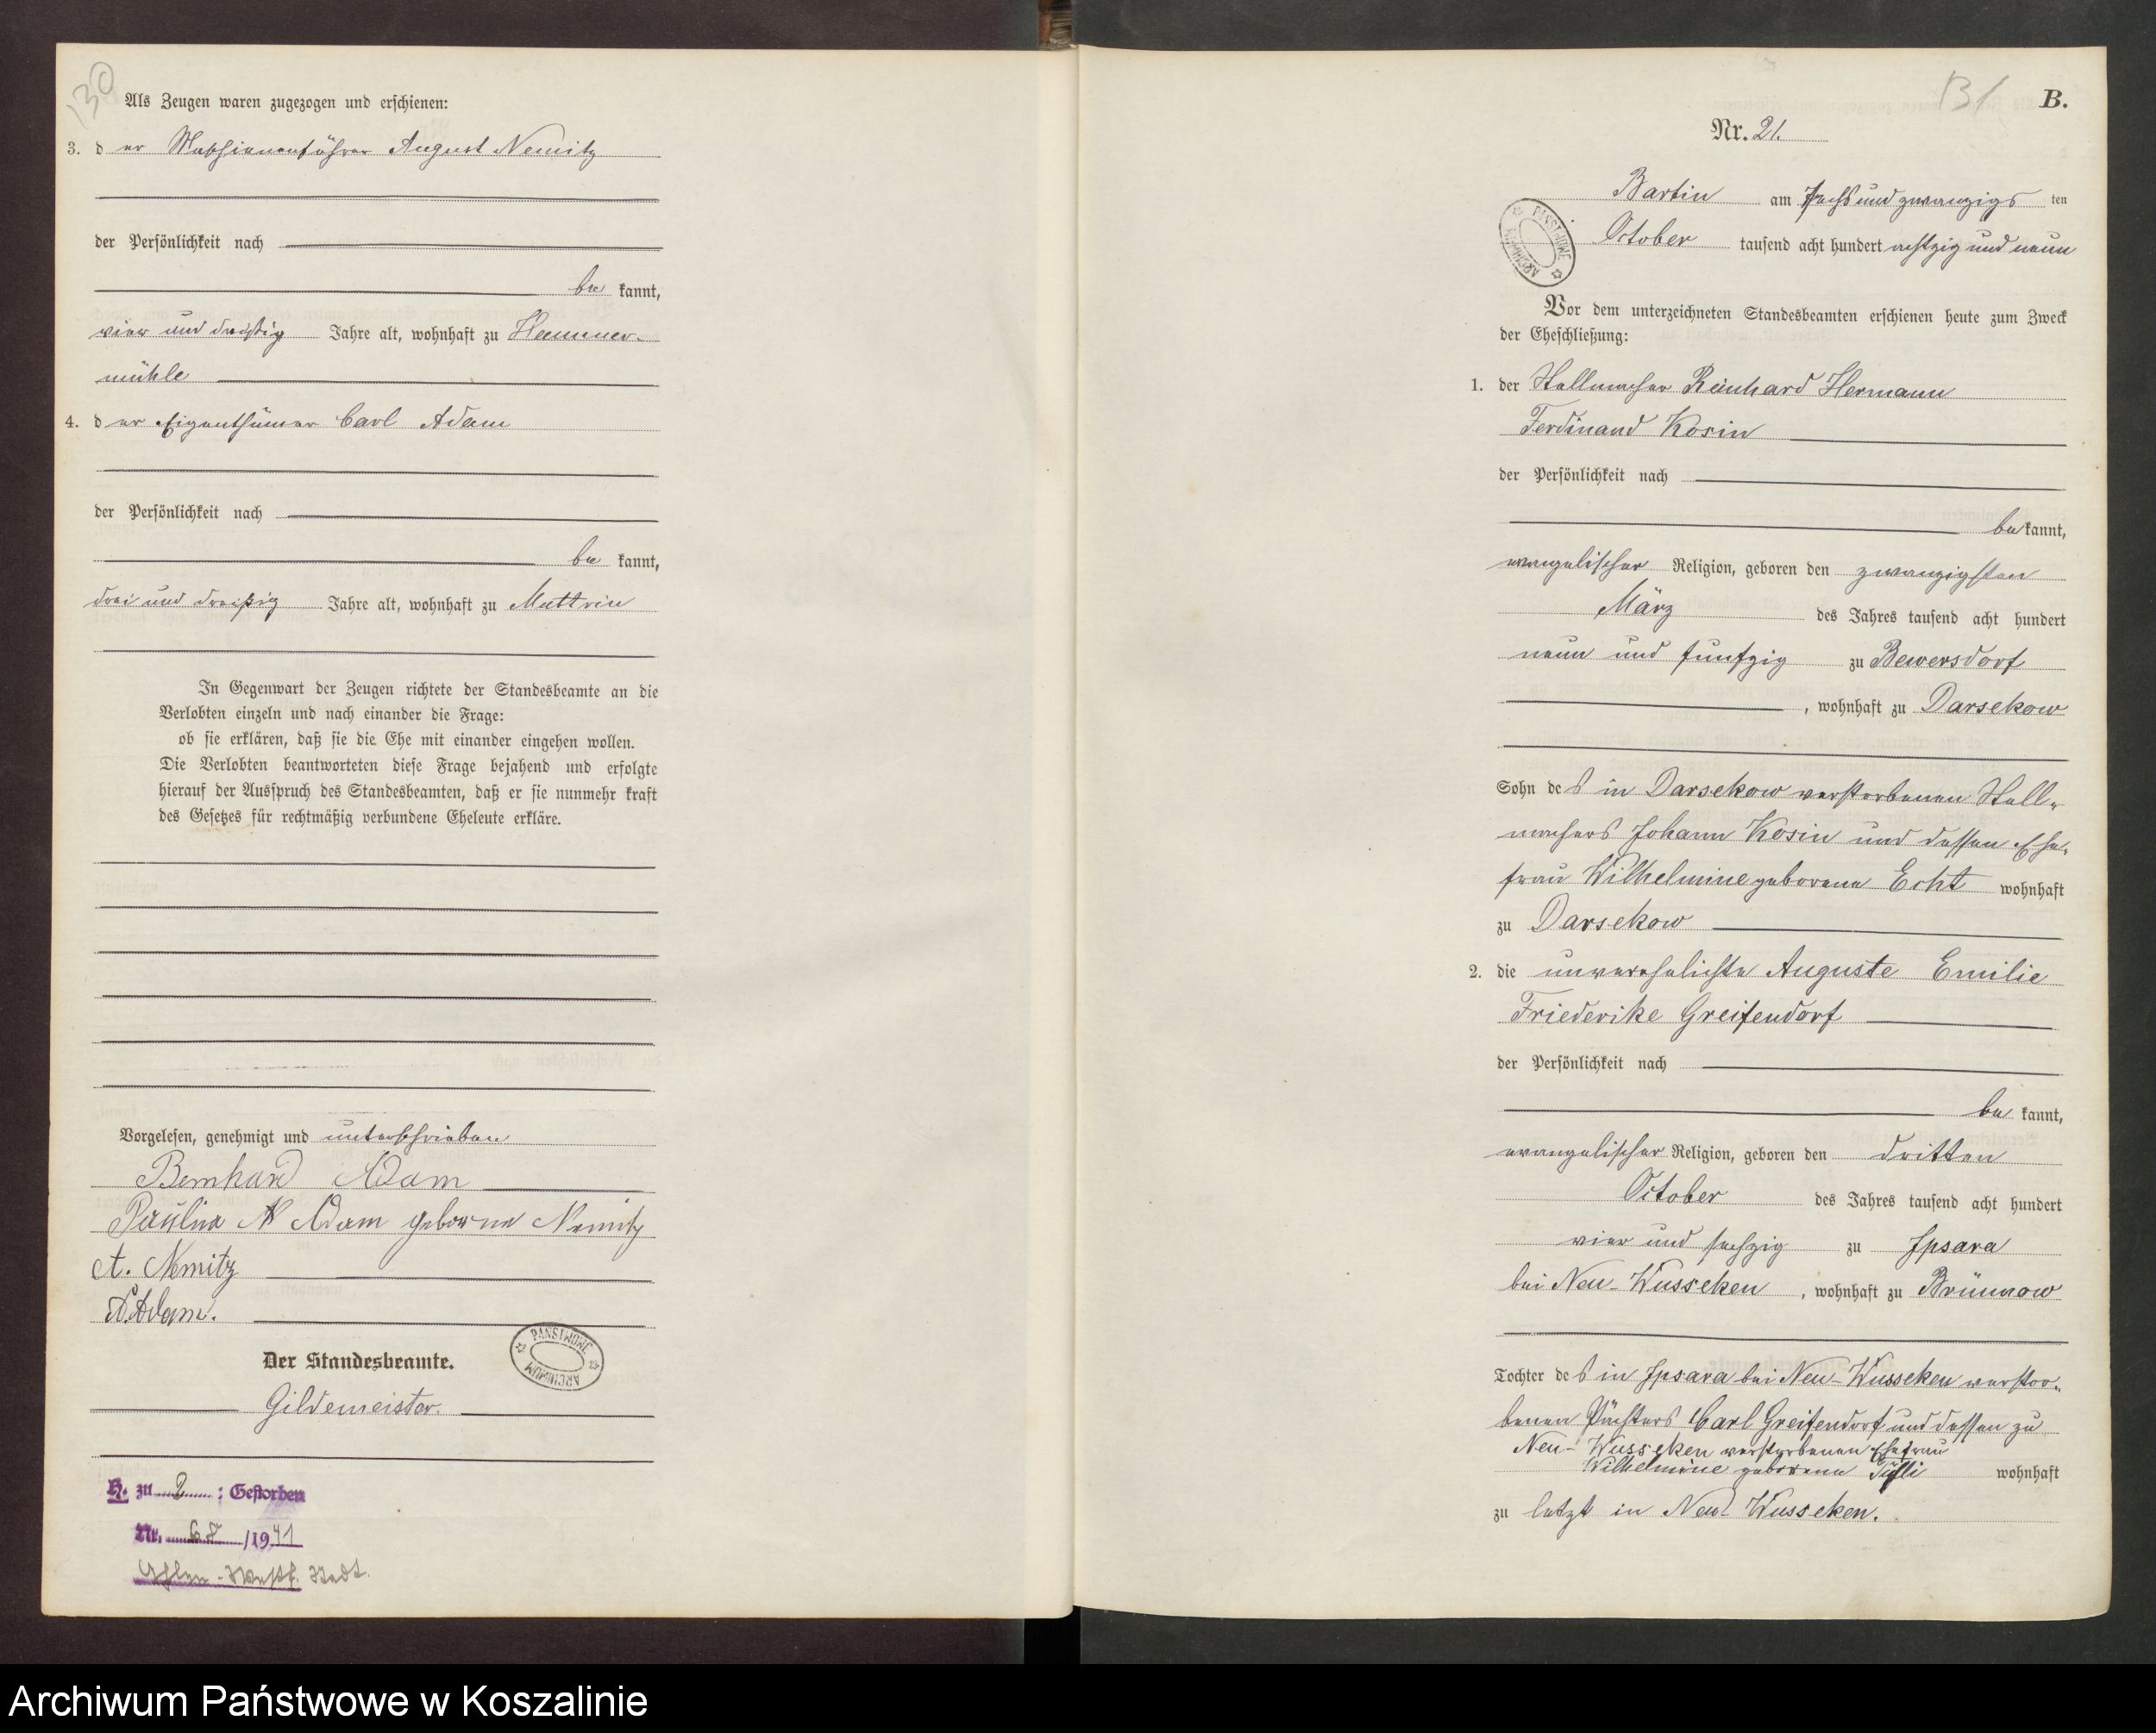 130
Als Zeugen waren zugezogen und erschienen:
3. der Maschinenführer August Nemitz
der Persönlichkeit nach
bekannt,
vier und dreißig Jahre alt, wohnhaft zu Hammer-
mühle
4. der Eigenthümer Carl Adam
der Persönlichkeit nach
bekannt,
drei und dreißig Jahre alt, wohnhaft zu Muttrin
In Gegenwart der Zeugen richtete der Standesbeamte an die
Verlobten einzeln und nach einander die Frage:
ob sie erklären, daß sie die Ehe mit einander eingehen wollen.
Die Verlobten beantworteten diese Frage bejahend und erfolgte
hierauf der Ausspruch des Standesbeamten, daß er sie nunmehr kraft
des Gesetzes für rechtmäßig verbundene Eheleute erkläre.
Vorgelesen, genehmigt und unterschrieben
Bernhard Adam
Adam geborne Nemitz
A. Nemitz
Adam.
Der Standesbeamte.
PAŃSTWOWE ARCHIWUM
Gildemeister.
H. zu 2 : Gestorben
Nr. 68/1941
Ahlen-Westf. Stadt.
131 B.
Nr. 21.
Bartin am sechs und zwanzigsten
PAŃSTWOWE ARCHIWUM
October tausend acht hundert achtzig und neun
Vor dem unterzeichneten Standesbeamten erschienen heute zum Zweck
der Eheschließung:
1. der Stellmacher Reinhard Hermann
Ferdinand Kosin
der Persönlichkeit nach
bekannt,
evangelischer Religion, geboren den zwanzigsten
März des Jahres tausend acht hundert
neun und funfzig zu Bewersdorf
, wohnhaft zu Darsekow
Sohn des in Darsekow verstorbenen Stell-
machers Johann Kosin und dessen Ehe-
frau Wilhelmine geborene Echt wohnhaft
zu Darsekow
2. die unverehelichte Auguste Emilie
Friederike Greifendorf
der Persönlichkeit nach
bekannt,
evangelischer Religion, geboren den dritten
October des Jahres tausend acht hundert
vier und sechzig zu Ipsara
bei Neu-Wusseken, wohnhaft zu Brünnow
Tochter des in Ipsara bei Neu-Wusseken verstor-
benen Pächters Carl Greifendorf und dessen zu
Neu-Wusseken verstorbenen Ehefrau
Wilhelmine geborene wohnhaft
zu letzt in Neu-Wusseken.
Archiwum Państwowe w Koszalinie